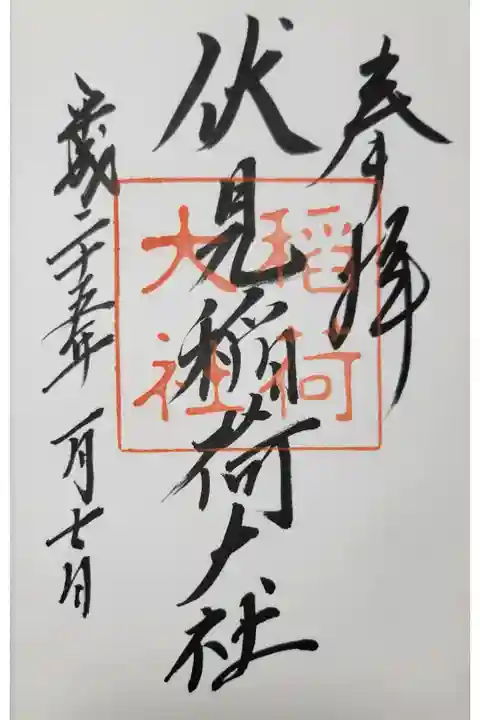 奉拝
伏見稲荷大社
平成二十五年 一月七日
稲荷
大社